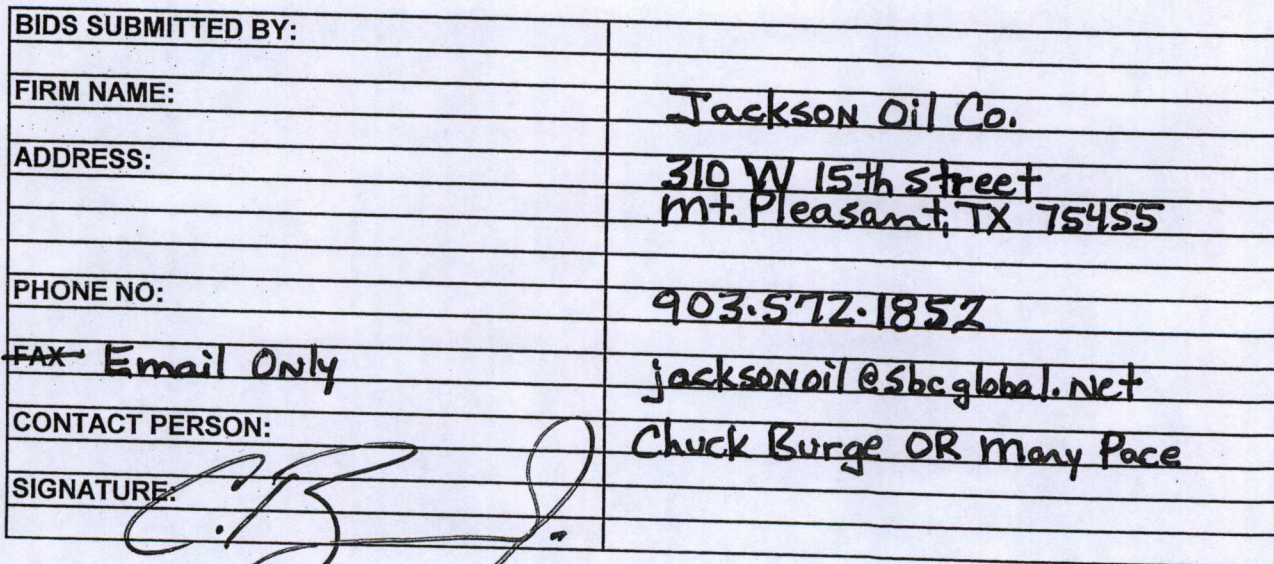 BIDS SUBMITTED BY:
FIRM NAME: Jackson Oil Co.
ADDRESS: 310 W 15th street
Mt. Pleasant, TX 75455
PHONE NO: 903.572.1852
FAX Email Only jacksonoil@sbcglobal.net
CONTACT PERSON: Chuck Burge OR Mary Pace
SIGNATURE: